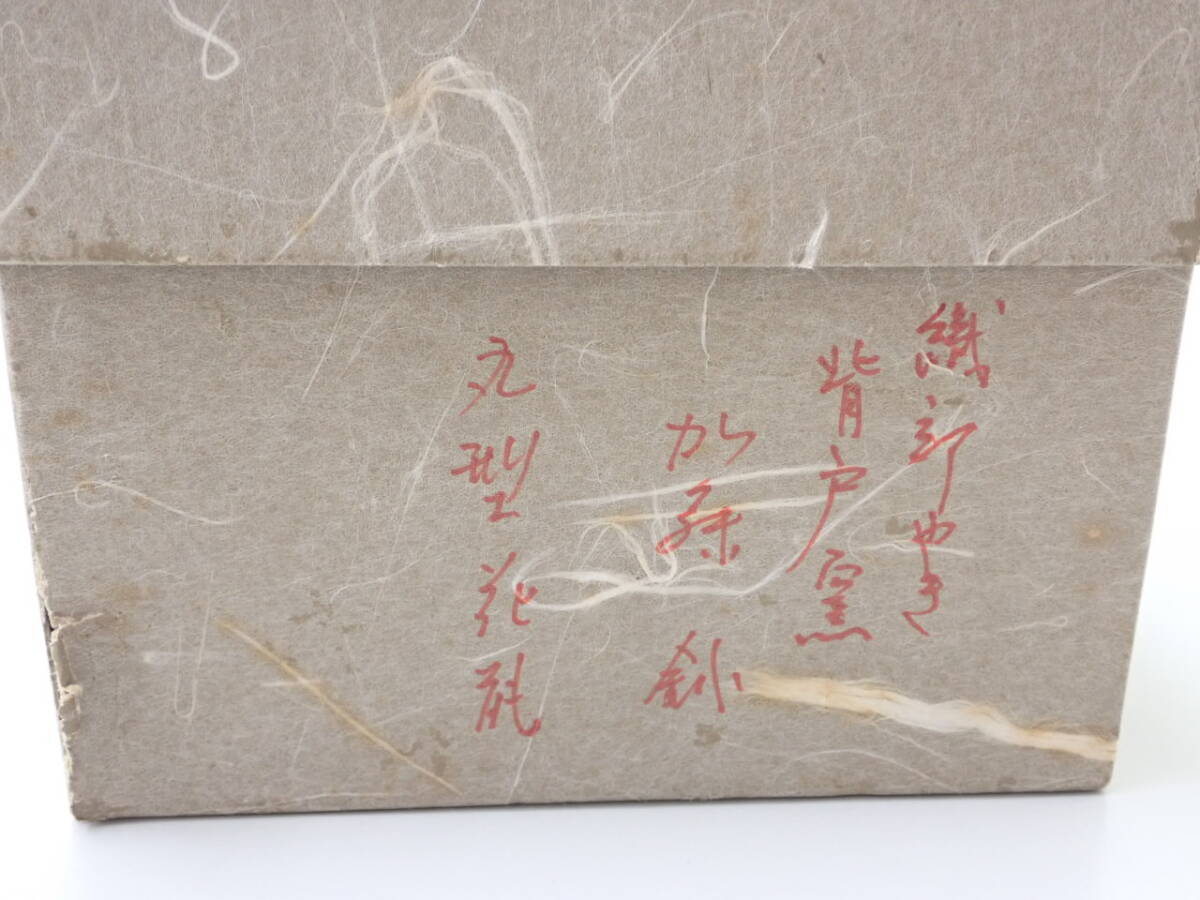 織部やき
背戸窯
加藤釥
丸型花瓶